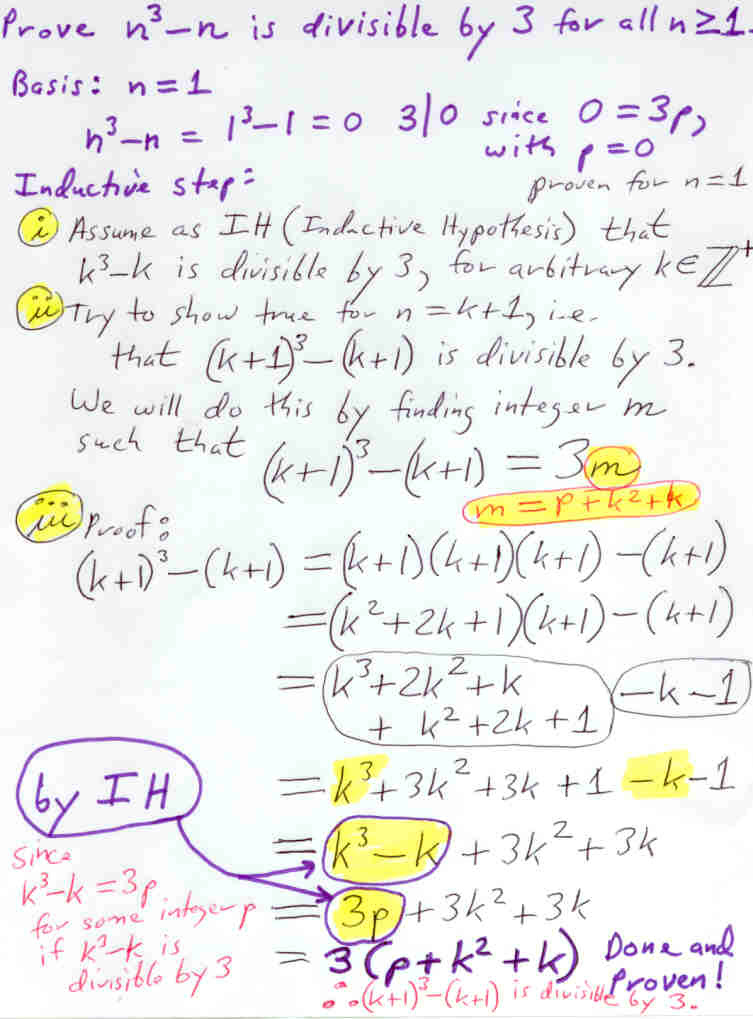 Prove n³-n is divisible by 3 for all n≥1.
Basis: n=1
n³-n = 1³-1 = 0 3|0 since 0=3p,
with p=0
Inductive step:
proven for n=1
i Assume as IH (Inductive Hypothesis) that
k³-k is divisible by 3, for arbitrary k∈ℤ⁺
ii Try to show true for n=k+1, i.e.
that (k+1)³-(k+1) is divisible by 3.
We will do this by finding integer m
such that
(k+1)³-(k+1) = 3m
m = p+k²+k
iii Proof:
(k+1)³-(k+1) = (k+1)(k+1)(k+1) -(k+1)
=(k²+2k+1)(k+1)-(k+1)
= k³+2k²+k -k-1
+ k²+2k+1
= k³+3k²+3k+1 -k-1
by IH
= k³-k + 3k²+3k
Since
k³-k=3p
for some integer p
if k³-k is
divisible by 3
= 3p+3k²+3k
= 3(p+k²+k) Done and
Proven!
∴ (k+1)³-(k+1) is divisible by 3.